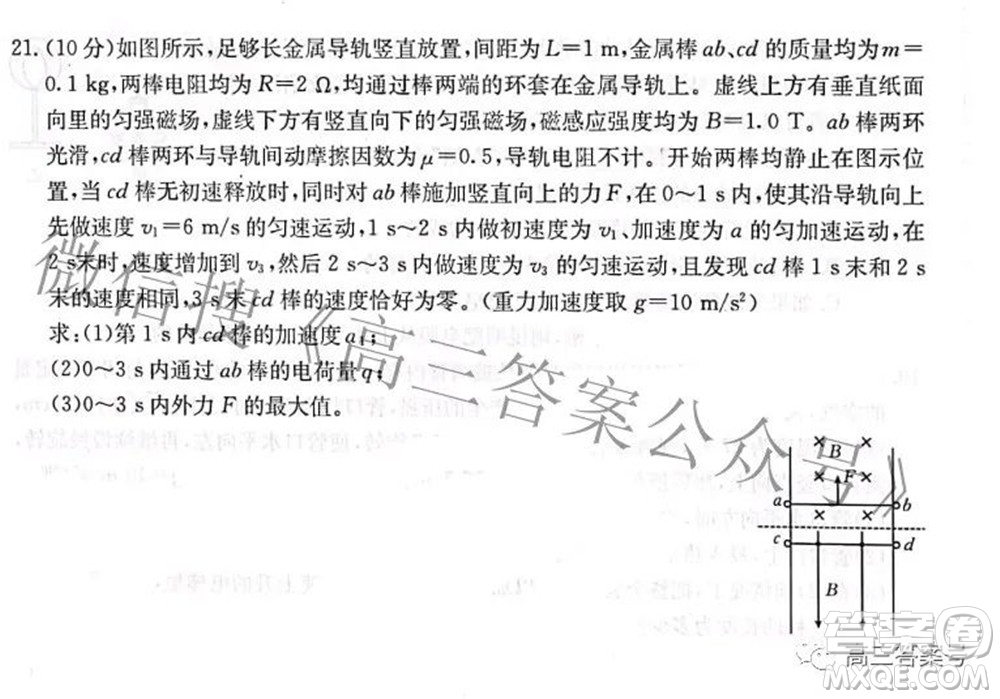 21.(10分)如图所示,足够长金属导轨竖直放置,间距为L=1 m,金属棒ab、cd的质量均为m=
0.1 kg,两棒电阻均为R=2 Ω,均通过棒两端的环套在金属导轨上。虚线上方有垂直纸面
向里的匀强磁场,虚线下方有竖直向下的匀强磁场,磁感应强度均为B=1.0 T。ab棒两环
光滑,cd棒两环与导轨间动摩擦因数为μ=0.5,导轨电阻不计。开始两棒均静止在图示位
置,当cd棒无初速释放时,同时对ab棒施加竖直向上的力F,在0~1 s内,使其沿导轨向上
先做速度v₁=6 m/s的匀速运动,1 s~2 s内做初速度为v₁、加速度为a的匀加速运动,在
2 s末时,速度增加到v₃,然后2 s~3 s内做速度为v₃的匀速运动,且发现cd棒1 s末和2 s
末的速度相同,3 s末cd棒的速度恰好为零。(重力加速度取g=10 m/s²)
求:(1)第1 s内cd棒的加速度a₁;
(2)0~3 s内通过ab棒的电荷量q;
(3)0~3 s内外力F的最大值。
B
F
a
b
c
d
B
微信搜《高三答案公众号》
答案圈
高三答案号